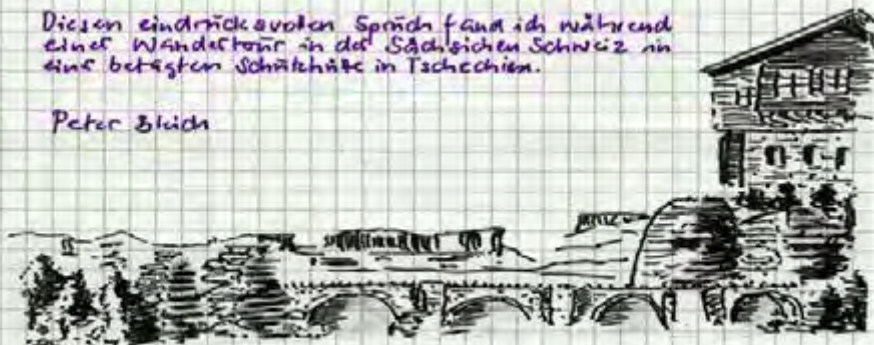 Diesen eindrucksvollen Spruch fand ich während
einer Wandertour in der Sächsichen Schweiz in
eine betagten Schutzhütte in Tschechien.
Peter